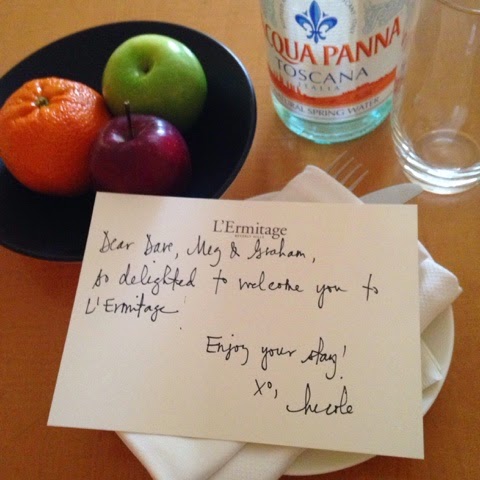 ACQUA PANNA
TOSCANA
ITALIA
NATURAL SPRING WATER
L'Ermitage
BEVERLY HILLS
Dear Dave, Meg & Graham,
so delighted to welcome you to
L'Ermitage!
Enjoy your stay!
xo,
Nicole